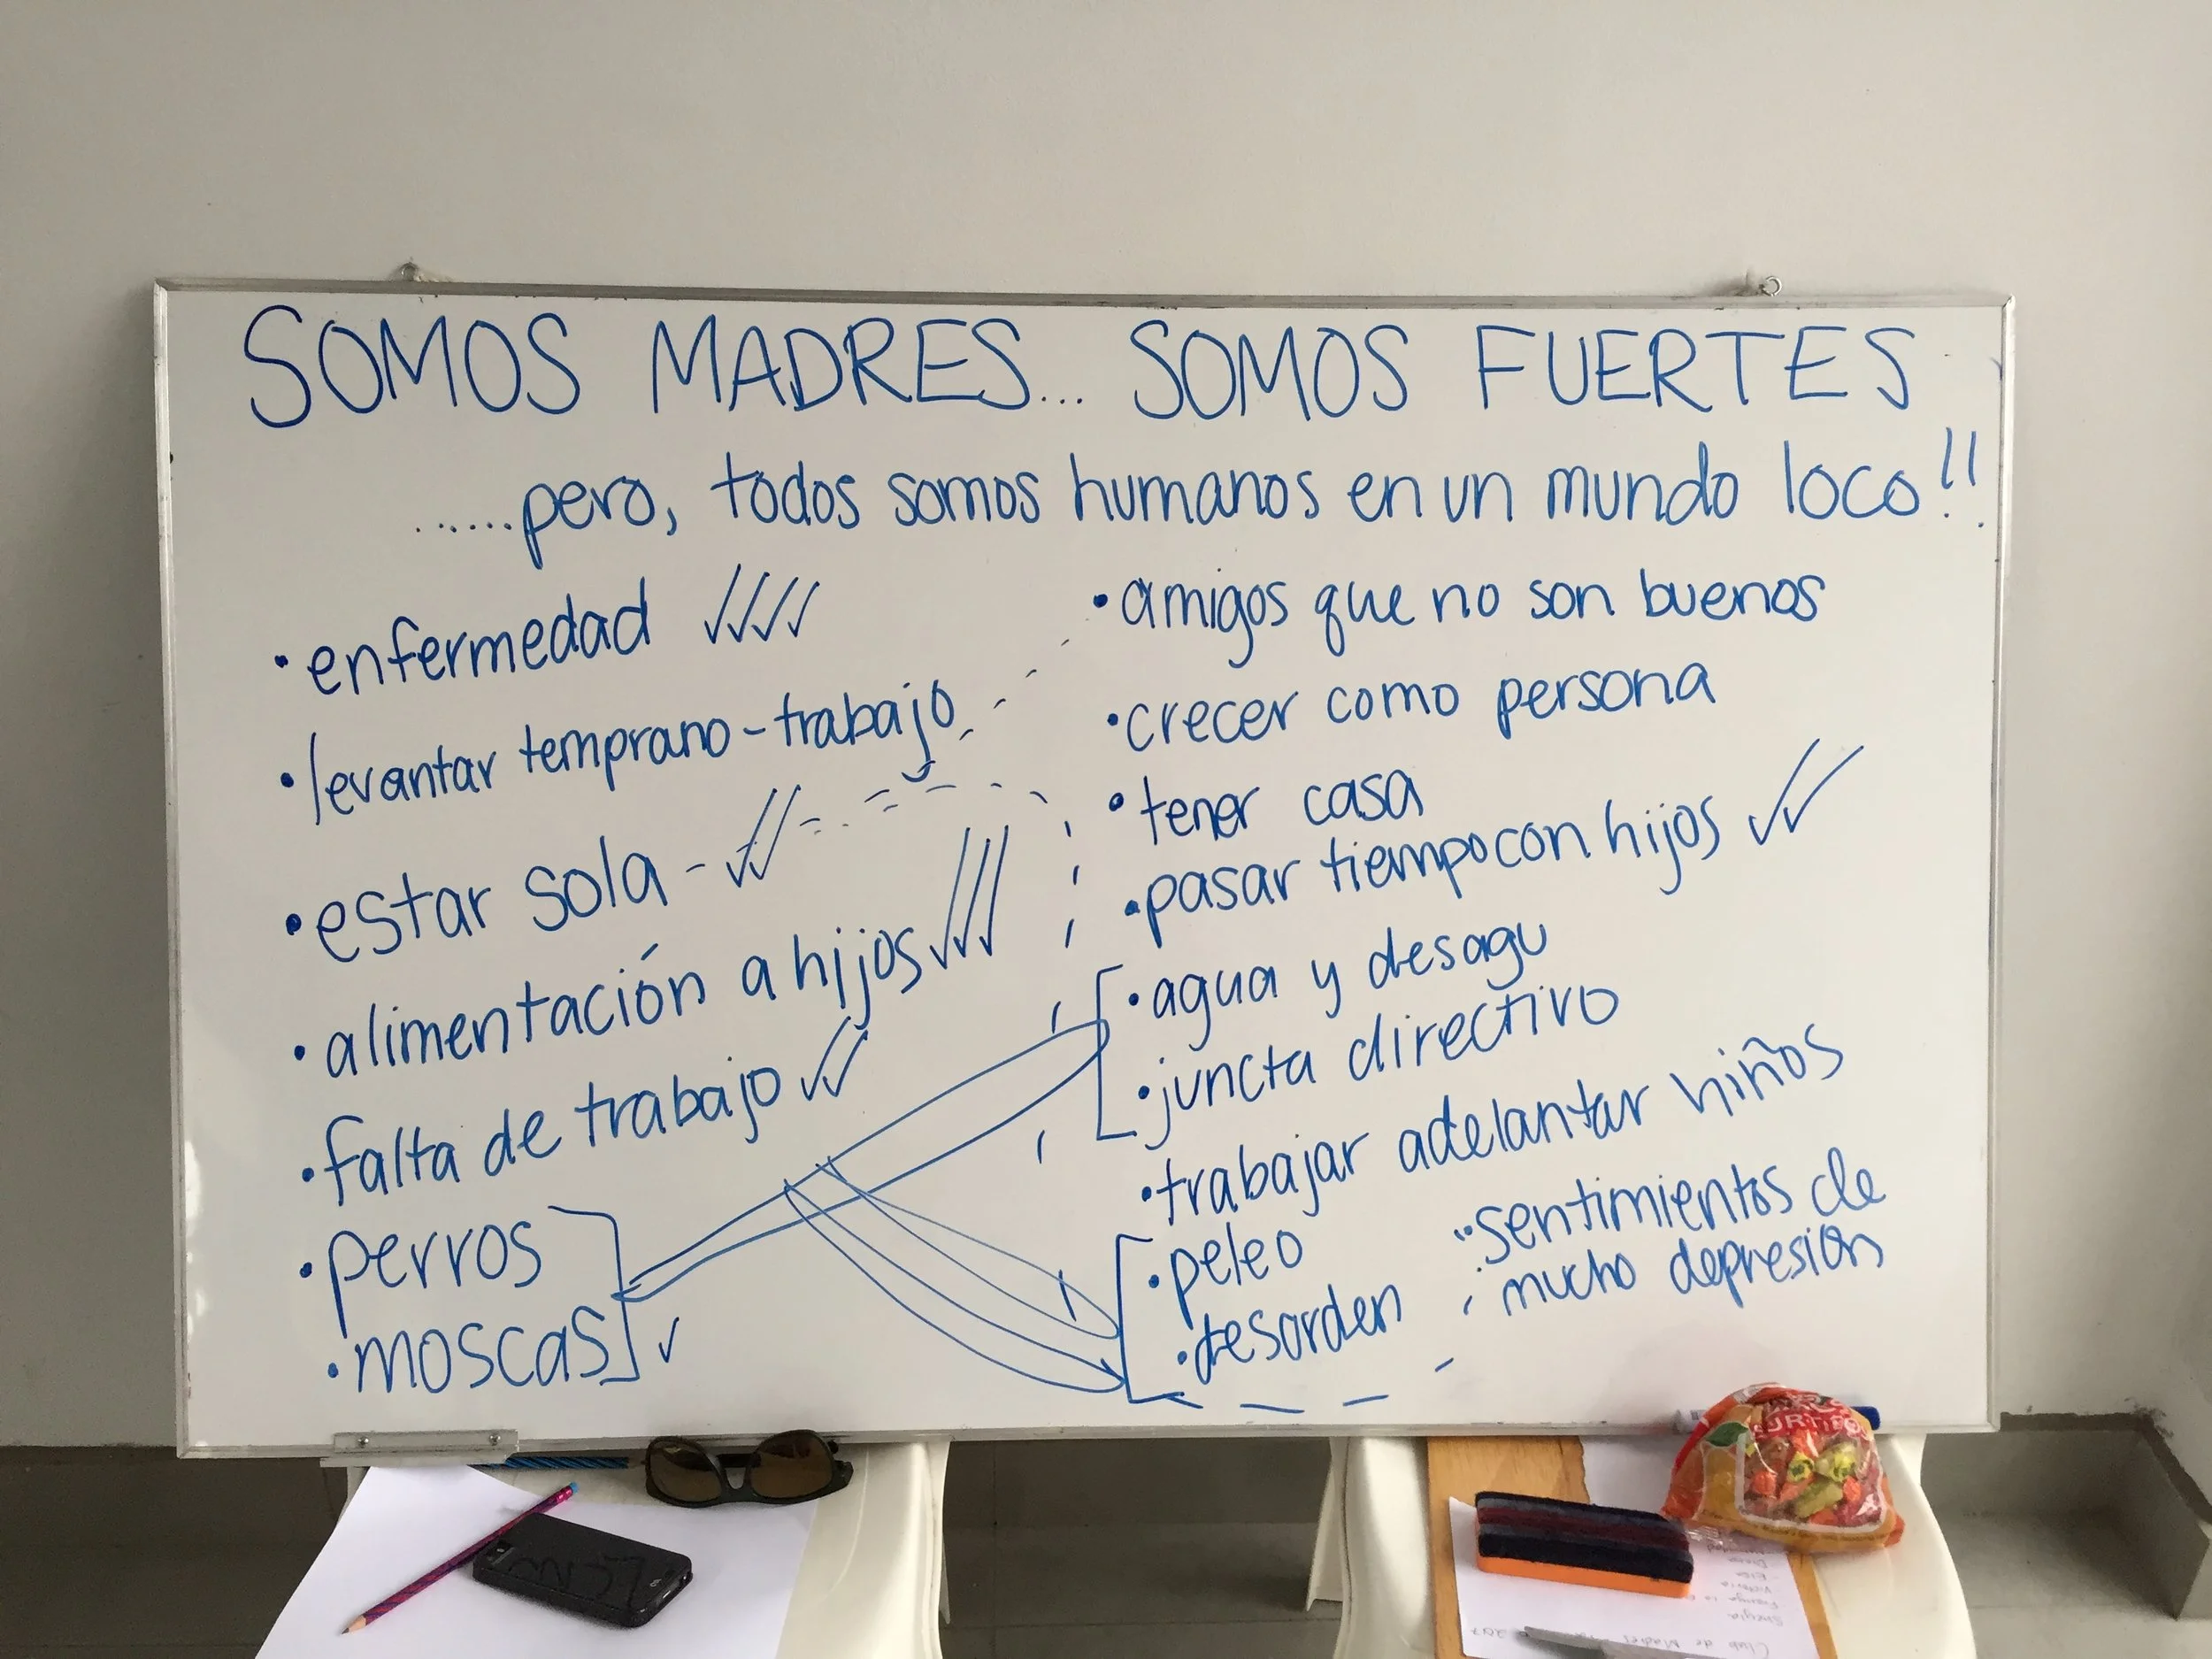 SOMOS MADRES... SOMOS FUERTES
......pero, todos somos humanos en un mundo loco!!
• enfermedad ✓✓✓✓
• levantar temprano - trabajo
• estar sola - ✓✓
• alimentación a hijos ✓✓✓
• falta de trabajo ✓✓
• perros
• moscas ✓
• amigos que no son buenos
• crecer como persona
• tener casa
• pasar tiempo con hijos ✓✓
• agua y desagu
• juncta directivo
• trabajar adelantar niños
• peleo
• desorden
• sentimientos de
mucho depresión
Club de Madres